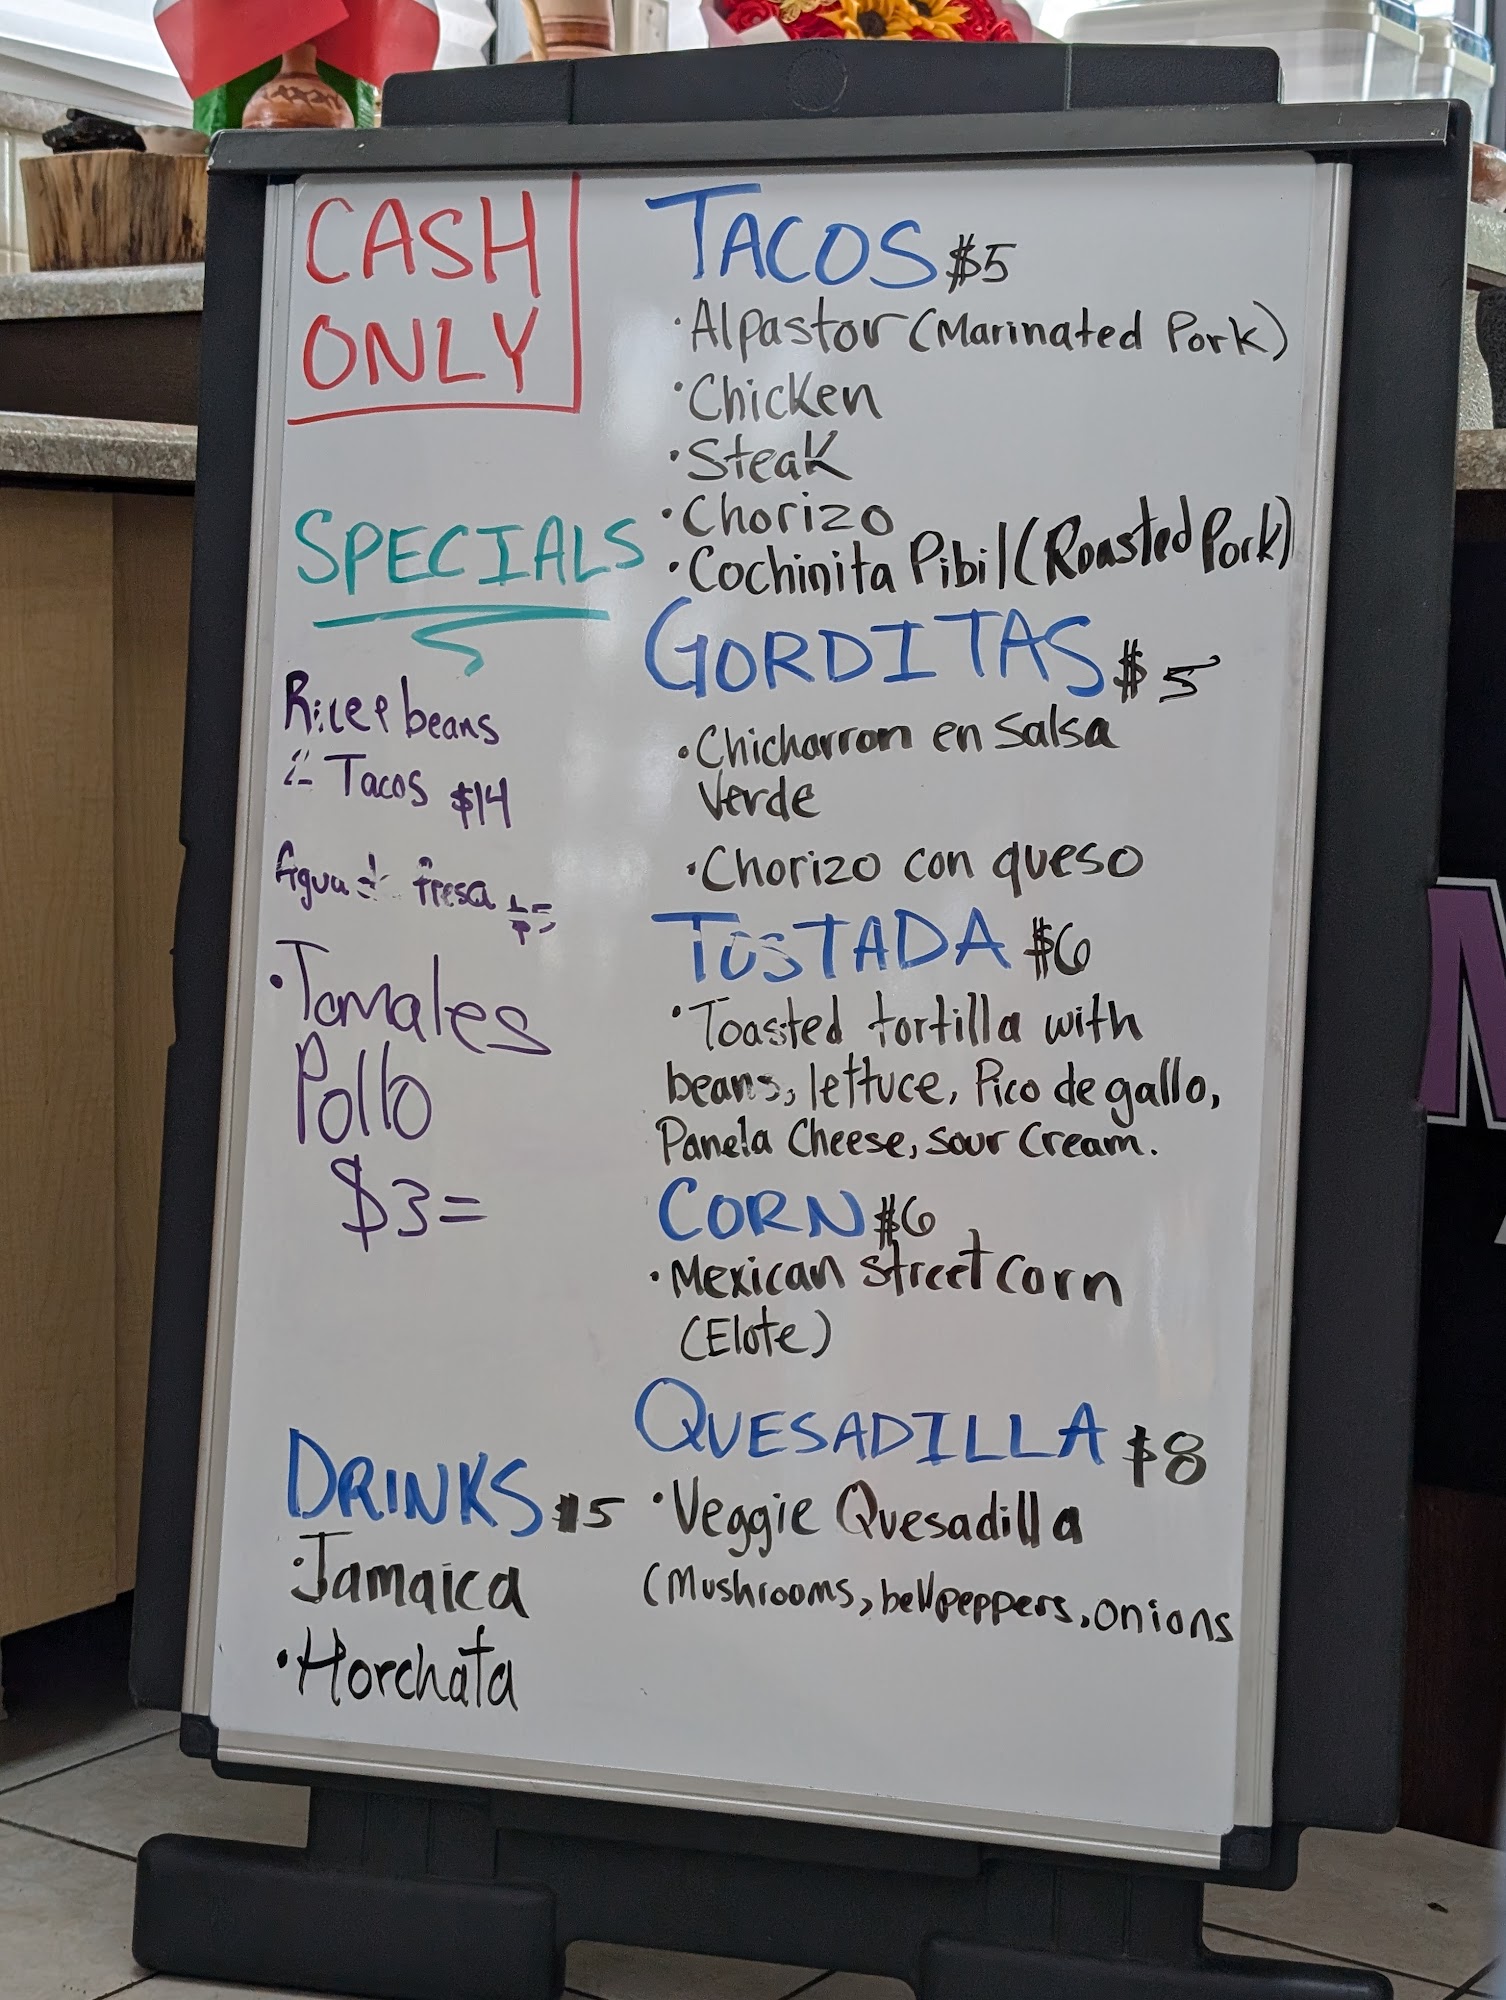 CASH
ONLY
SPECIALS
Rice & beans
2 Tacos $14
Agua de fresa $5
• Tamales
Pollo
$3=
DRINKS $5
• Jamaica
• Horchata
TACOS $5
• Alpastor (Marinated Pork)
• Chicken
• Steak
• Chorizo
• Cochinita Pibil (Roasted Pork)
GORDITAS $5
• Chicharron en Salsa
Verde
• Chorizo con queso
TOSTADA $6
• Toasted tortilla with
beans, lettuce, Pico de gallo,
Panela Cheese, Sour Cream.
CORN $6
• Mexican Street Corn
(Elote)
QUESADILLA $8
• Veggie Quesadilla
(Mushrooms, bell peppers, onions